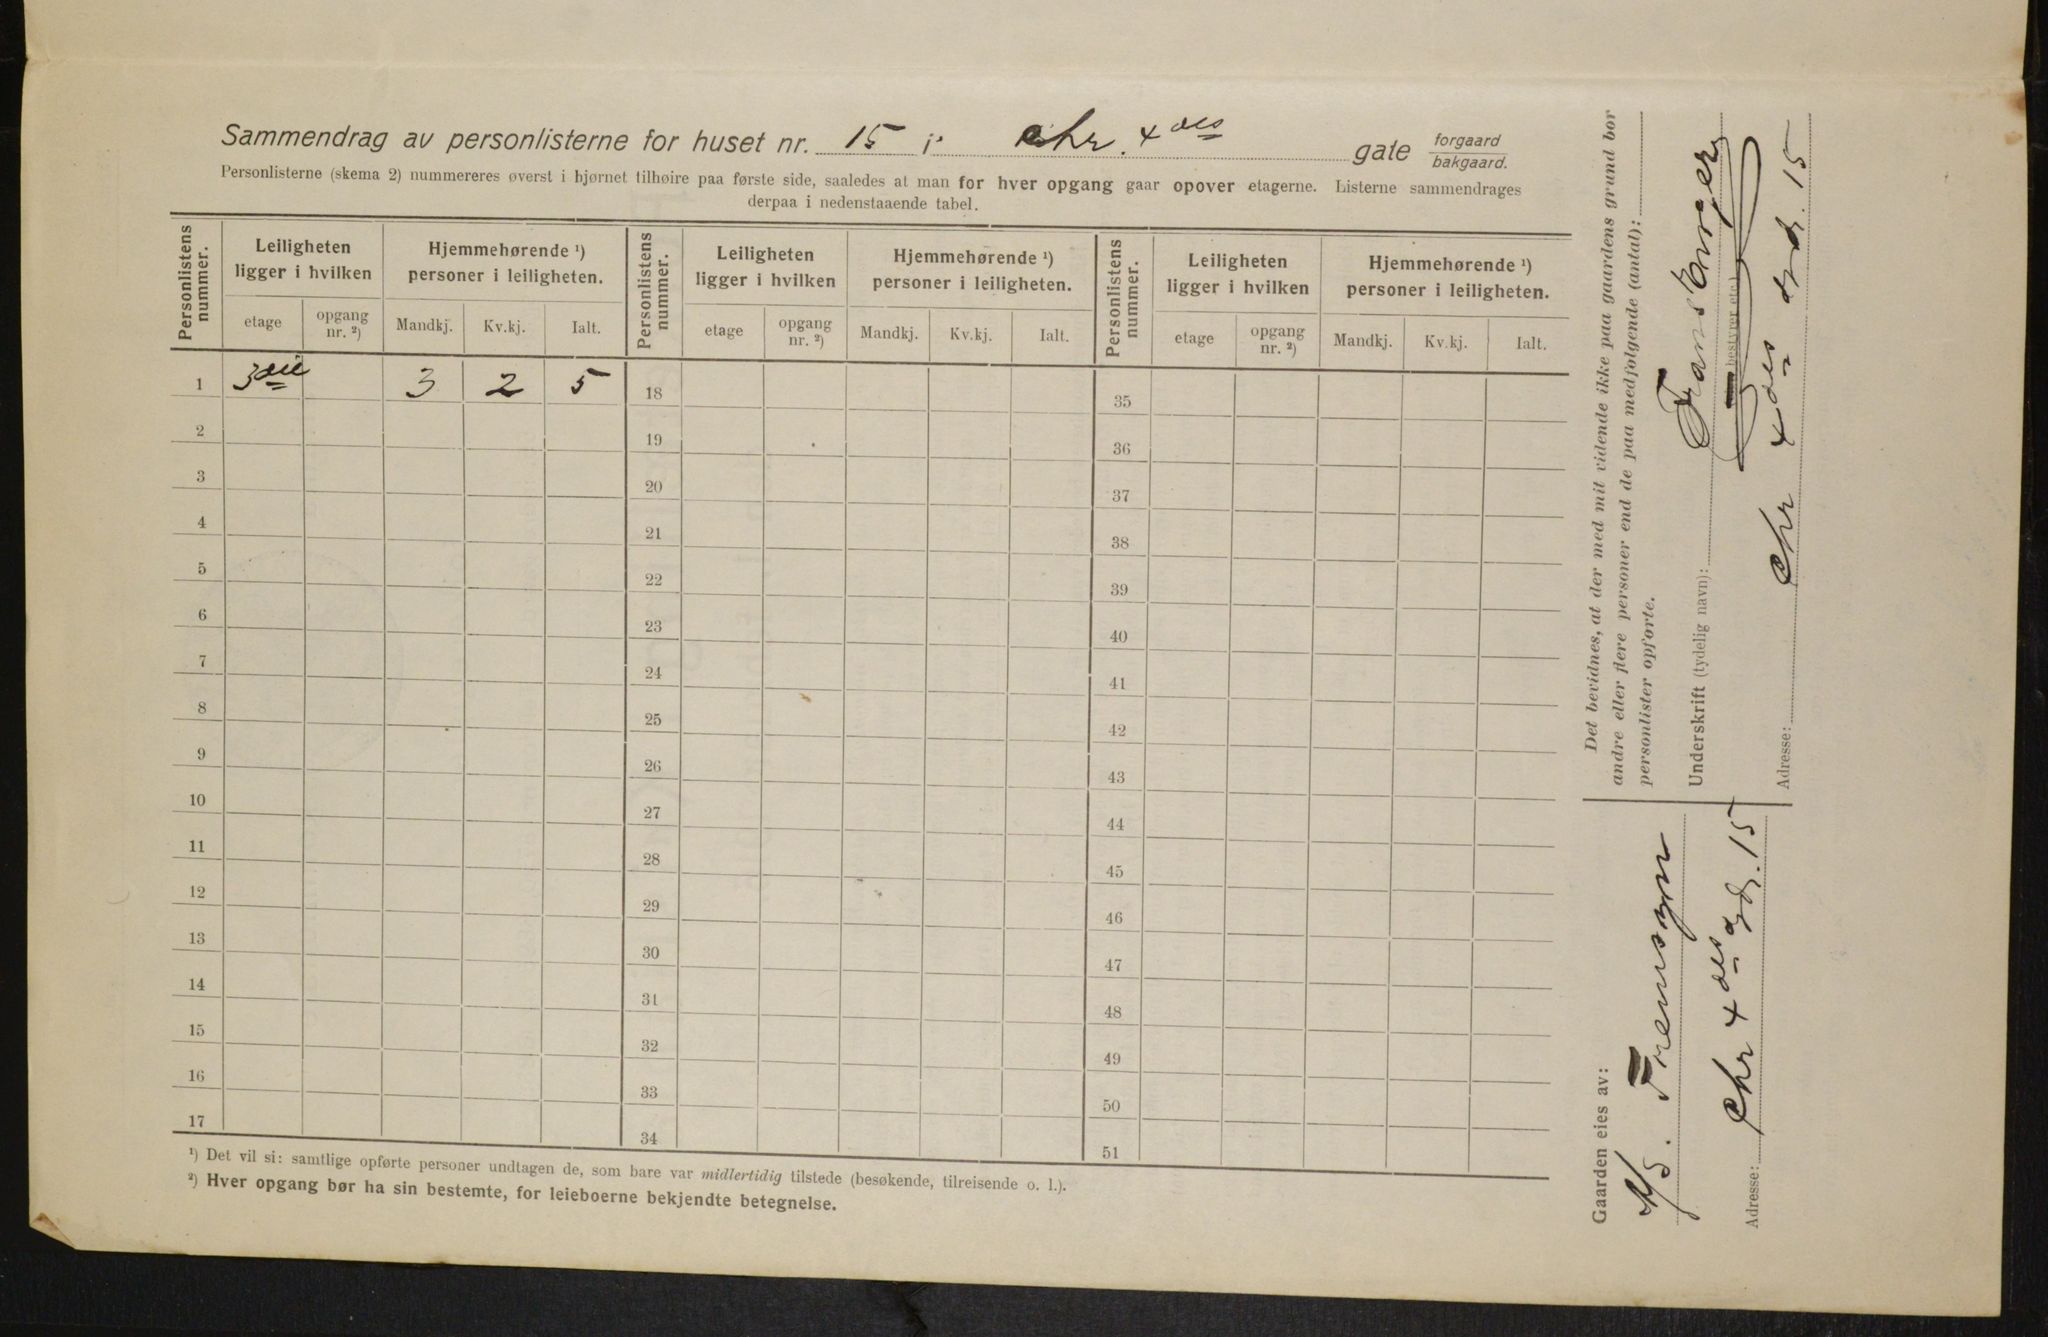 Sammendrag av personlisterne for huset nr. 15 i Chr. 4des gate forgaard
bakgaard.
Personlisterne (skema 2) nummereres øverst i hjørnet tilhøire paa første side, saaledes at man for hver opgang gaar opover etagerne. Listerne sammendrages
derpaa i nedenstaaende tabel.
Personlistens nummer. Leiligheten ligger i hvilken Hjemmehørende ¹) personer i leiligheten. Personlistens nummer. Leiligheten ligger i hvilken Hjemmehørende ¹) personer i leiligheten. Personlistens nummer. Leiligheten ligger i hvilken Hjemmehørende ¹) personer i leiligheten.
etage opgang nr. ²) Mandkj. Kv.kj. Ialt. etage opgang nr. ²) Mandkj. Kv.kj. Ialt. etage opgang nr. ²) Mandkj. Kv.kj. Ialt.
1 3die 3 2 5 18 35
2 19 36
3 20 37
4 21 38
5 22 39
6 23 40
7 24 41
8 25 42
9 26 43
10 27 44
11 28 45
12 29 46
13 30 47
14 31 48
15 32 49
16 33 50
17 34 51
¹) Det vil si: samtlige opførte personer undtagen de, som bare var midlertidig tilstede (besøkende, tilreisende o. l.).
²) Hver opgang bør ha sin bestemte, for leieboerne bekjendte betegnelse.
Det bevidnes, at der med mit vidende ikke paa gaardens grund bor
andre eller flere personer end de paa medfølgende (antal):
personlister opførte.
Underskrift (tydelig navn): Frans
bestyrer etc.)
Adresse: Chr 4des gd. 15
Gaarden eies av:
A/S.
Adresse: Chr 4des gd. 15